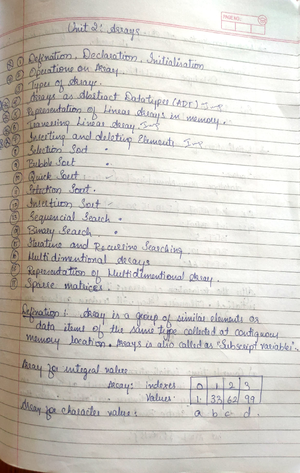 PAGE NO.
Unit 2: Arrays
① Defination, Declaration, Initialisation
② Operations on Array.
Types of Arrays.
Arrays as Abstract Datatypes (ADT)
Representation of Linear Arrays in memory.
Traversing Linear Array.
Inserting and deleting Elements
Selection Sort
Bubble Sort
Quick Sort
Selection Sort.
Insertion Sort
Sequencial Search
Binary Search
Iterative and Recursive Searching
Multidimentional arrays
Representation of Multidimentional Array.
Sparse matrices
Defination: Array is a group of similar elements or
data items of the same type collected at contiguous
memory location. Arrays is also called as "Subscript variables".
Array for integral values
Array: indexes 0 1 2 3
Values 1 33 62 99
Array for character values: a b c d.